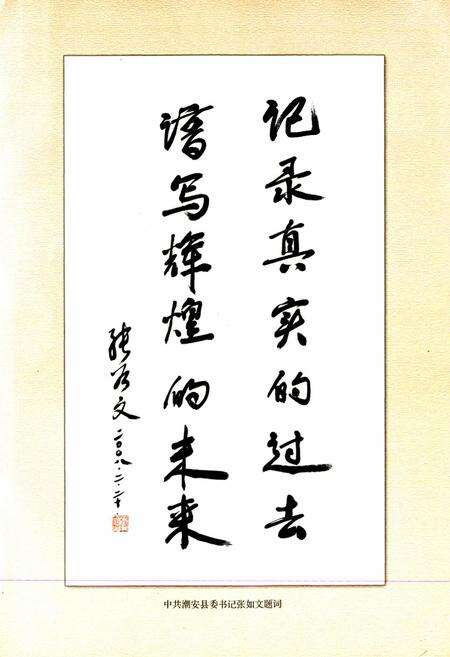 记录真实的过去
谱写辉煌的未来
张如文
二〇〇八.二.二十.
中共潮安县委书记张如文题词